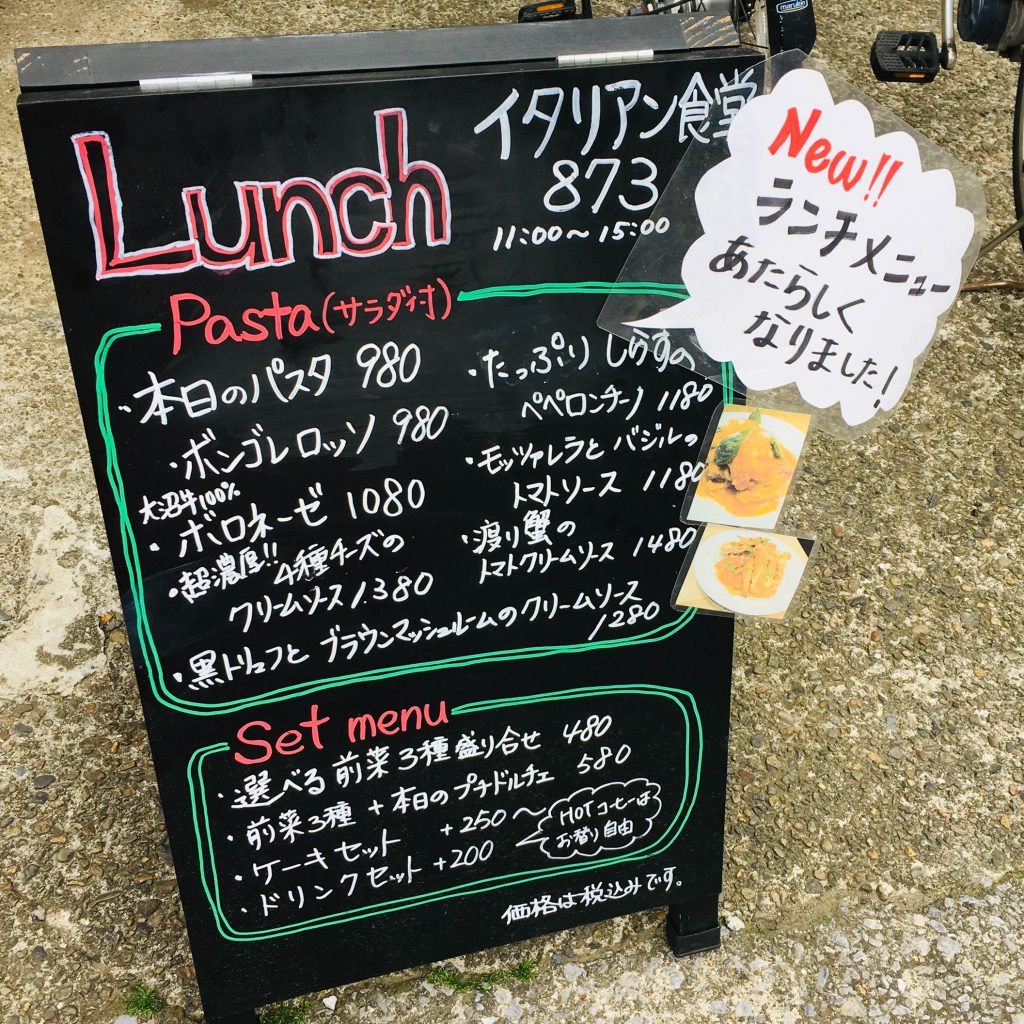 Lunch
イタリアン食堂
873
11:00〜15:00
New!!
ランチメニュー
あたらしく
なりました!
Pasta(サラダ付)
・本日のパスタ 980
・ボンゴレロッソ 980
大沼牛100%
・ボロネーゼ 1080
・超濃厚!! 4種チーズの
クリームソース1380
・たっぷり しらすの
ペペロンチーノ 1180
・モッツァレラと バジルの
トマトソース 1180
・渡り蟹の
トマトクリームソース 1480
・黒トリュフと ブラウンマッシュルームのクリームソース
1280
Set menu
・選べる 前菜3種盛り合せ 480
・前菜3種 + 本日のプチドルチェ 580
・ケーキセット +250〜
・ドリンクセット +200
HOTコーヒーは
お替り自由
価格は税込みです。